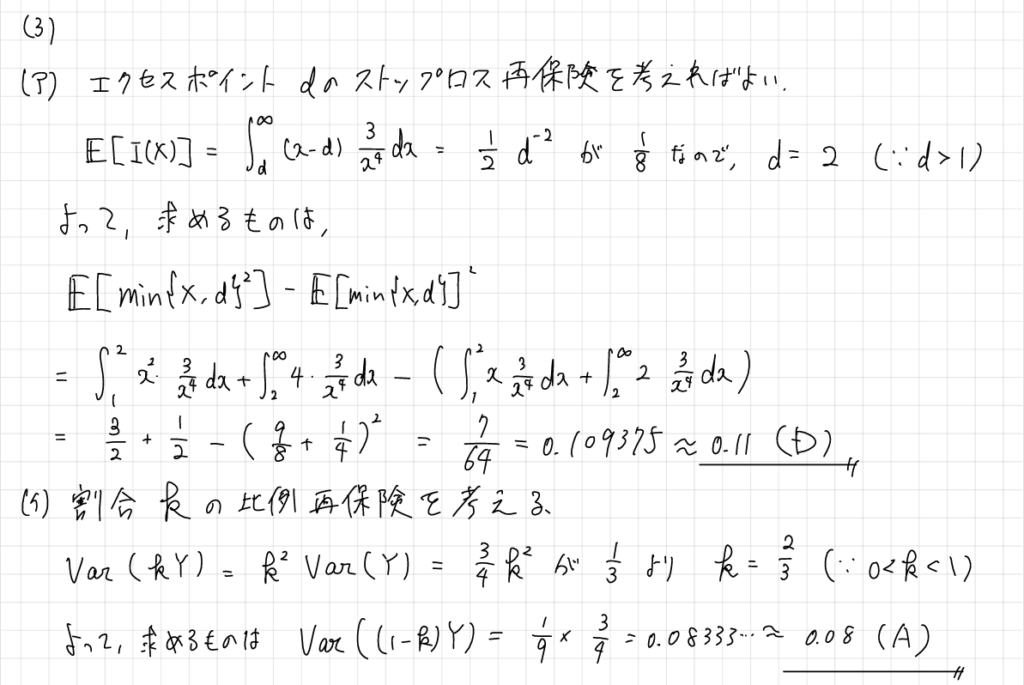 (3)
(ア) エクセスポイント dの ストップロス 再保険を考えればよい.
E[I(X)] = ∫_d^∞ (x-d) 3/x^4 dx = 1/2 d^-2 が 1/8 なので, d = 2 (∵ d > 1)
よって, 求めるものは,
E[min{X, d}^2] - E[min{X, d}]^2
= ∫_1^2 x^2・3/x^4 dx + ∫_2^∞ 4・3/x^4 dx - (∫_1^2 x 3/x^4 dx + ∫_2^∞ 2 3/x^4 dx)
= 3/2 + 1/2 - (9/8 + 1/4)^2 = 7/64 = 0.109375 ≈ 0.11 (D)
(イ) 割合 k の 比例 再保険を考える.
Var(kY) = k^2 Var(Y) = 3/4 k^2 が 1/3 より k = 2/3 (∵ 0<k<1)
よって, 求めるものは Var((1-k)Y) = 1/9 × 3/4 = 0.08333… ≈ 0.08 (A)